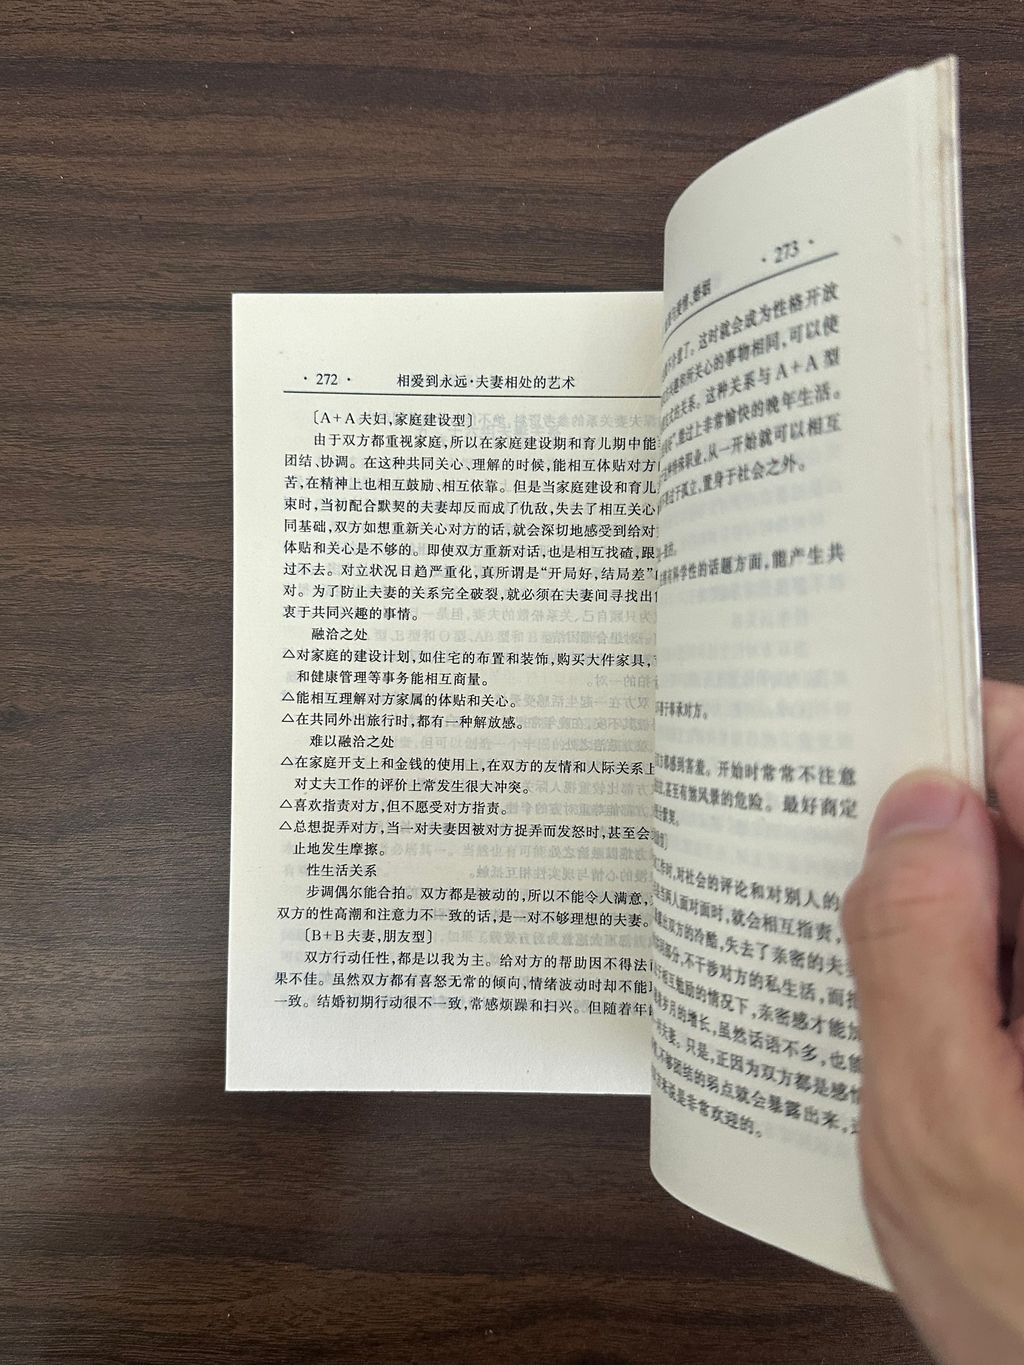 · 272 ·
相爱到永远·夫妻相处的艺术
〔A+A 夫妇,家庭建设型〕
由于双方都重视家庭,所以在家庭建设期和育儿期中能
团结、协调。在这种共同关心、理解的时候,能相互体贴对方
苦,在精神上也相互鼓励、相互依靠。但是当家庭建设和育儿
束时,当初配合默契的夫妻却反而成了仇敌,失去了相互关心
同基础,双方如想重新关心对方的话,就会深切地感受到给对
体贴和关心是不够的。即使双方重新对话,也是相互找碴,跟
过不去。对立状况日趋严重化,真所谓是“开局好,结局差”
对。为了防止夫妻的关系完全破裂,就必须在夫妻间寻找出
衷于共同兴趣的事情。
融洽之处
△对家庭的建设计划,如住宅的布置和装饰,购买大件家具,
和健康管理等事务能相互商量。
△能相互理解对方家属的体贴和关心。
△在共同外出旅行时,都有一种解放感。
难以融洽之处
△在家庭开支上和金钱的使用上,在双方的友情和人际关系上
对丈夫工作的评价上常发生很大冲突。
△喜欢指责对方,但不愿受对方指责。
△总想捉弄对方,当一对夫妻因被对方捉弄而发怒时,甚至会
止地发生摩擦。
性生活关系
步调偶尔能合拍。双方都是被动的,所以不能令人满意,
双方的性高潮和注意力不一致的话,是一对不够理想的夫妻。
〔B+B 夫妻,朋友型〕
双方行动任性,都是以我为主。给对方的帮助因不得法
果不佳。虽然双方都有喜怒无常的倾向,情绪波动时却不能
一致。结婚初期行动很不一致,常感烦躁和扫兴。但随着年
· 273 ·
爱情、婚姻
了。这时就会成为性格开放
和所关心的事物相同,可以使
的关系。这种关系与 A+A 型
能过上非常愉快的晚年生活。
职业,从一开始就可以相互
过于孤立,置身于社会之外。
科学性的话题方面,能产生共
于奉承对方。
都感到害羞。开始时常常不注意
甚至有煞风景的危险。最好商定
时,对社会的评论和对别人的
当两人面对面时,就会相互指责,
出双方的冷酷,失去了亲密的夫
部分,不干涉对方的私生活,而
相互勉励的情况下,亲密感才能
岁月的增长,虽然话语不多,也能
夫妻。只是,正因为双方都是感情
不够团结的弱点就会暴露出来,
来说是非常欢迎的。